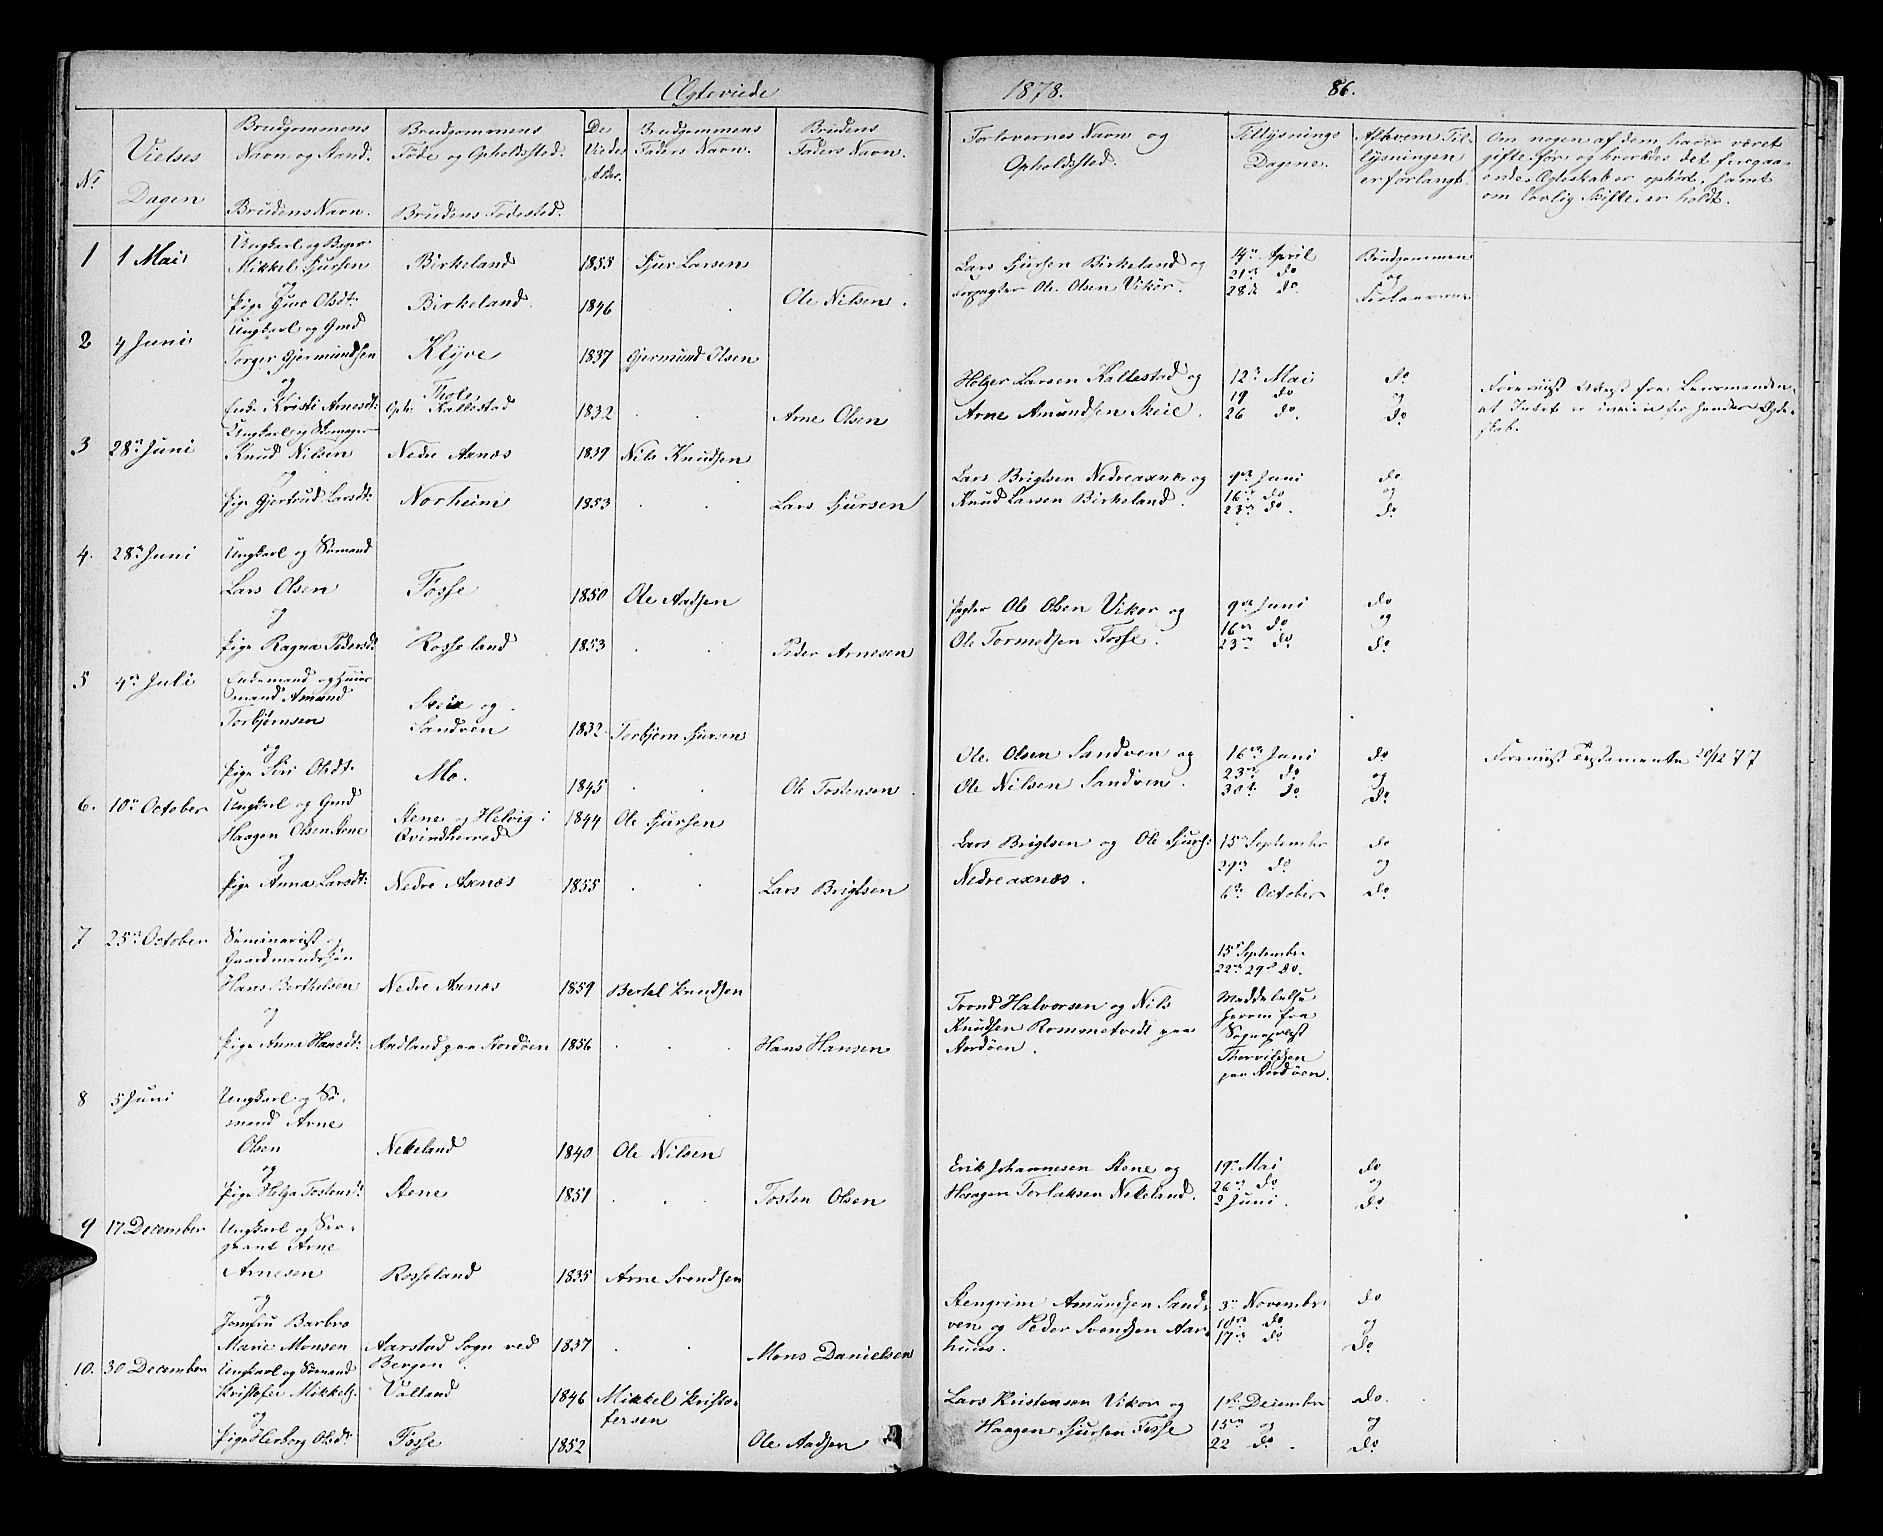 Ægteviede 1878. 86.
No
Vielses Dagen
Brudgommens Navn og Stand.
Brudens Navn.
Brudgommens Føde og Opholdssted.
Brudens Fødested.
De Viedes Alder.
Brudgommens Faders Navn.
Brudens Faders Navn.
Forlovernes Navn og Opholdssted.
Tillysnings Dagene.
Af hvem Tillysningen er forlangt.
Om nogen af dem, haver været gifte før, og hvorledes det foregaaende Ægteskab er ophørt, samt om Lovlig Skifte er holdt.
1 1 Mai
Ungkarl og
Mikkel Sjursen Birkeland 1855 Sjur Larsen
og
Pige Guro Olsdt: Birkeland 1846 Ole Nilsen.
Lars Sjursen Birkeland og
Ole Olsen Vikør.
14de April
21de do
28de do.
Brudgommen
og
Forloverne
2 4 Juni
Ungkarl og Gmd
Torger Gjermundsen Klyve 1837 Gjermund Olsen
og
Enke Kristi Arnesdt: Opk. Kallestad 1832 Arne Olsen
Helge Larsen Kallestad og
Arne Amundsen Skeie.
12te Mai
19 do
26 do.
do
og
do
Forevist Attest fra Lensmanden
at Intet er i veien for hendes Ægteskab.
3 28de Juni
Ungkarl og Skomager
Knud Nilsen Nedre Axnæs 1839 Nils Knudsen
og
Pige Gjertrud Larsdt: Norheim 1853 Lars Sjursen
Lars Brigtsen Nedreaxnæs og
Knud Larsen Birkeland.
9de Juni
16de do
23de do.
do
og
do
4. 28de Juni
Ungkarl og Sømand
Lars Olsen Fosse 1850 Ole Aadsen
og
Pige Ragna Pedersdt Rosseland 1853 Peder Arnesen
Ole Olsen Vikør og
Ole Tormodsen Fosse.
9de Juni
16de do
23de do
do
og
do
5 4de Juli
Enkemand og Huusmand Amund
Torbjørnsen Skeie og Sandven 1832 Torbjørn Sjursen
og
Pige Siri Olsdt: Mo. 1845 Ole Tostensen.
Ole Olsen Sandven og
Ole Nilsen Sandven.
16de Juni
23de do
30te do
do
og
do
Forevist Testamente 20/12 77
6. 10de October
Ungkarl og Gmd
Haagen Olsen Stene Stene og Helvig i Qvindherred 1844 Ole Sjursen
og
Pige Anna Larsdt: Nedre Axnæs 1855 Lars Brigtsen
Lars Brigtsen og Ole Sjurs:
Nedreaxnæs.
15de September
29de do
6te October
do
og
do
7 25de October
Seminarist og
Gaardmandssøn
Hans Berthelsen Nedre Axnæs 1859 Bertel Knudsen
og
Pige Anna Hansdt: Aadland paa Stordøen 1856 Hans Hansen
Trond Halvorsen og Nils
Knudsen Rommetvedt paa
Stordøen.
15de September
22de 29de do.
Meddelelse
herom fra
Sognepræst
paa Stordøen.
8 5 Juni
Ungkarl og Sømand Arne
Olsen Nekeland 1840 Ole Nilsen
og
Pige Helga Tostensdt: Stene 1851 Tosten Olsen
Erik Johannesen Stene og
Haagen Torlaksen Nekeland.
19de Mai
26de do
2 Juni.
do
og
do
9 17 December
Ungkarl og Sergeant Arne
Arnesen Rosseland 1835 Arne Svendsen
og
Jomfru Barbro
Marie Monsen Aarstad Sogn ved Bergen. 1837 Mons Danielsen
Stengrim Amundsen Sandven og Peder Svendsen Aarhuus.
3de November
10de do
17de do
do
og
do
10. 30 December
Ungkarl og Sømand
Kristofer Mikkels: Valland 1846 Mikkel Kristofersen
og
Pige Herborg Olsdt Fosse 1852 Ole Aadsen
Lars Kristensen Vikør og
Haagen Sjursen Fosse
1ste December
15de og
22 do.
do.
og
do